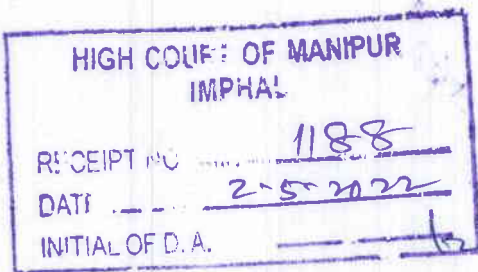 HIGH COURT OF MANIPUR
IMPHAL
RECEIPT NO 1188
DATE 2-5-2022
INITIAL OF D.A.